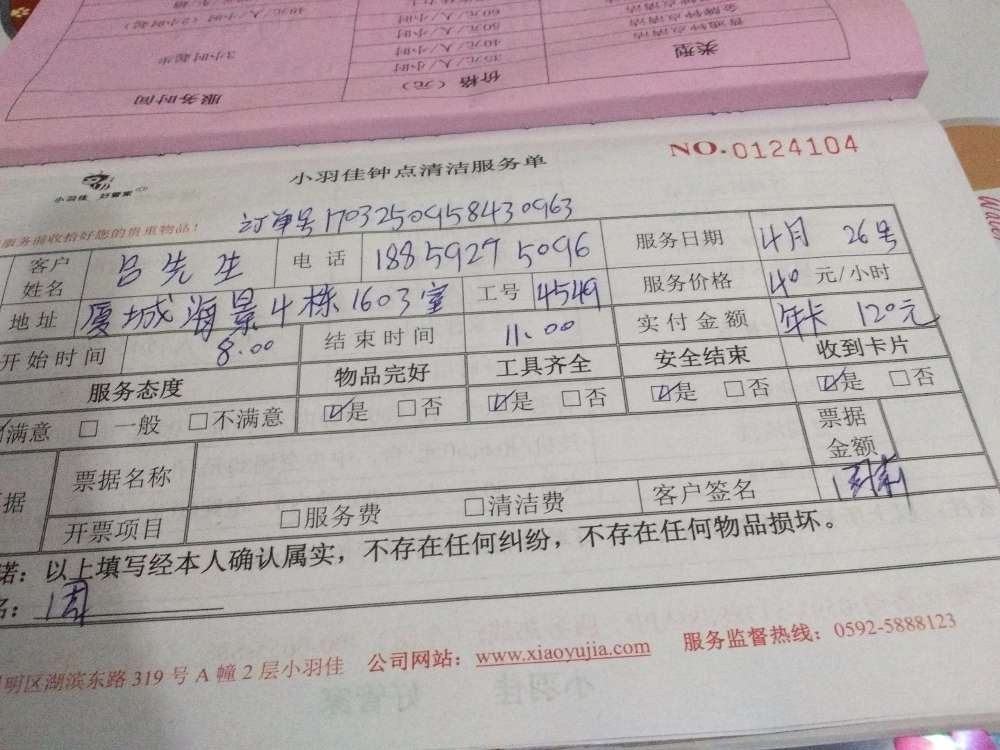 服务时间
价格（元）
类型
3小时起步
35元/人/小时
40元/人/小时
50元/人/小时
60元/人/小时
普通钟点清洁
金牌钟点清洁
小羽佳钟点清洁服务单
NO.0124104
小羽佳 好管家
服务前收拾好您的贵重物品！
订单号170325095843 0963
客户姓名 吕先生 电话 18859275096 服务日期 4月 26号
地址 厦城海景4栋1603室 工号 4549 服务价格 40 元/小时
开始时间 8.00 结束时间 11.00 实付金额 年卡 120元
服务态度 物品完好 工具齐全 安全结束 收到卡片
☑满意 □ 一般 □不满意 ☑是 □否 ☑是 □否 ☑是 □否 ☑是 □否
票据名称 票据金额
开票项目 □服务费 □清洁费 客户签名
诺：以上填写经本人确认属实，不存在任何纠纷，不存在任何物品损坏。
名：周
明区湖滨东路 319 号 A 幢 2 层小羽佳 公司网站：www.xiaoyujia.com 服务监督热线：0592-5888123
小羽佳 好管家